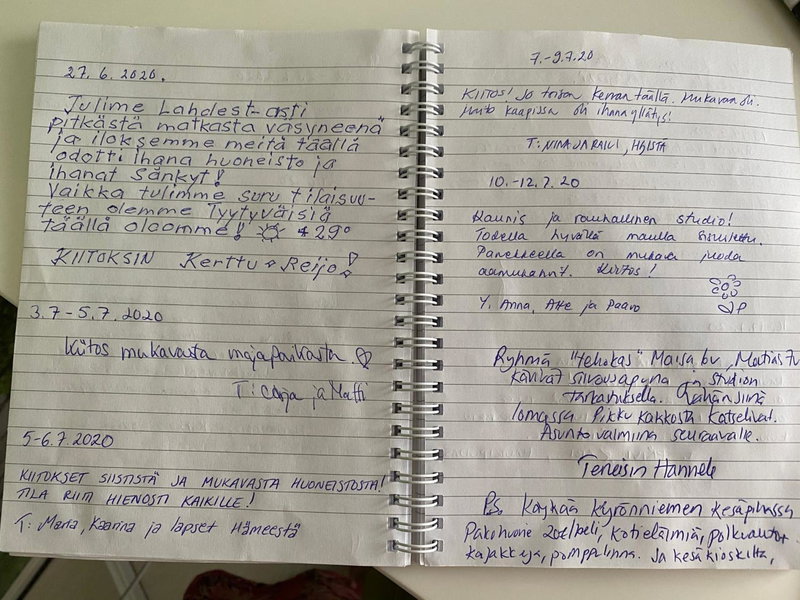 27.6.2020.
Tulimme Lahdest-asti
pitkästä matkasta väsyneenä
ja iloksemme meitä täällä
odotti ihana huoneisto ja
ihanat sänkyt!
Vaikka tulimme suru tilaisuu-
teen olemme Tyytyväisiä
täällä oloomme! +29°
KIITOKSIN Kerttu + Reijo!
3.7-5.7.2020
Kiitos mukavasta majapaikasta.
T: Caija ja Matti
5-6.7.2020
KIITOKSET SIISTISTÄ JA MUKAVASTA HUONEISTOSTA!
TILA RIITI HIENOSTI KAIKILLE!
T: Maria, Kaarina ja lapset Hämeestä
7.-9.7.20
KIITOS! Jo toisen kerran täällä. Mukavan oli.
Muito kaapissa oli ihana yllätys!
T: NINA JA RAILI, HGISTÄ
10.-12.7.20
Kaunis ja rauhallinen studio!
Todella hyvällä maulla sisustettu.
Parvekkeella on mukava juoda
aamukahvit. Kiitos!
Y. Anna, Atte ja Paavo
Ryhmä "tehokas" Maisa 6v, Matias 7v
kävivät siivousapuna studion
tarkastuksella. Tähän siinä
lomassa Pikku kakkosta katselivat.
Asunto valmiina seuraavalle.
Terveisin Hannele
Ps. Käykää Kyrönniemen kesäpihassa
Pakohuone 20e/peli, kotieläimiä, polkuautot
kajakkeja, pomppulinna. Ja kesäkioskilta,